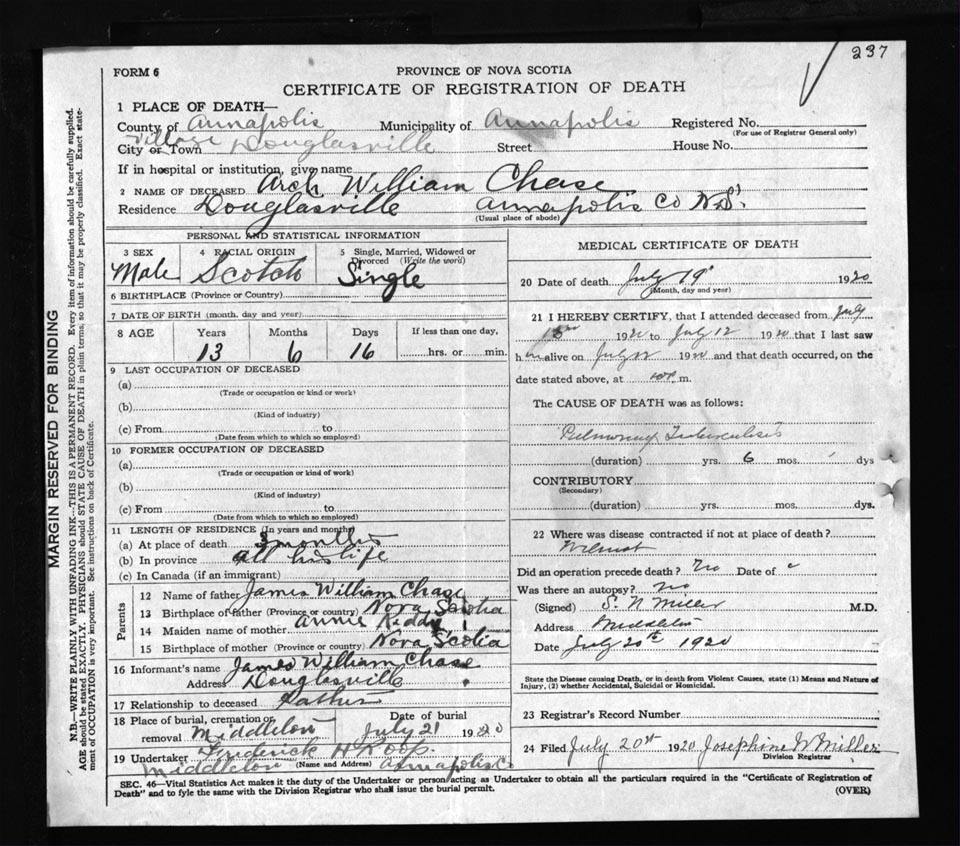 237
FORM 6
PROVINCE OF NOVA SCOTIA
CERTIFICATE OF REGISTRATION OF DEATH
1 PLACE OF DEATH—
County of Annapolis Municipality of Annapolis Registered No.
(For use of Registrar General only)
Village
City or Town Douglasville Street House No.
If in hospital or institution, give name
2 NAME OF DECEASED Arch William Chase
Residence Douglasville Annapolis Co N.S.
(Usual place of abode)
PERSONAL AND STATISTICAL INFORMATION
3 SEX 4 RACIAL ORIGIN 5 Single, Married, Widowed or Divorced (Write the word)
Male Scotch Single
6 BIRTHPLACE (Province or Country)
7 DATE OF BIRTH (month, day and year)
8 AGE Years Months Days If less than one day,
13 6 16 hrs. or min.
9 LAST OCCUPATION OF DECEASED
(a)
(Trade or occupation or kind or work)
(b)
(Kind of industry)
(c) From to
(Date from which to which so employed)
10 FORMER OCCUPATION OF DECEASED
(a)
(Trade or occupation or kind of work)
(b)
(Kind of industry)
(c) From to
(Date from which to which so employed)
11 LENGTH OF RESIDENCE (In years and months)
(a) At place of death months
(b) In province all his life
(c) In Canada (if an immigrant)
Parents
12 Name of father James William Chase
13 Birthplace of father (Province or country) Nova Scotia
14 Maiden name of mother Annie
15 Birthplace of mother (Province or country) Nova Scotia
16 Informant's name James William Chase
Address Douglasville
17 Relationship to deceased Father
18 Place of burial, cremation or removal Middleton Date of burial July 21 1920
19 Undertaker Frederick H Roop.
(Name and Address)
Middleton Annapolis Co
MEDICAL CERTIFICATE OF DEATH
20 Date of death July 19 1920
(Month, day and year)
21 I HEREBY CERTIFY, that I attended deceased from July
192 to July 12 192 that I last saw
h alive on July 192 and that death occurred, on the
date stated above, at m.
The CAUSE OF DEATH was as follows:
Pulmonary Tuberculosis
(duration) yrs. 6 mos. dys
CONTRIBUTORY
(Secondary)
(duration) yrs. mos. dys.
22 Where was disease contracted if not at place of death?
Wilmot
Did an operation precede death? No Date of
Was there an autopsy? No
(Signed) S. N Miller M.D.
Address Middleton
Date July 20th 1920
State the Disease causing Death, or in death from Violent Causes, state (1) Means and Nature of
Injury, (2) whether Accidental, Suicidal or Homicidal.
23 Registrar's Record Number
24 Filed July 20st 1920 Josephine W Miller
Division Registrar
SEC. 46—Vital Statistics Act makes it the duty of the Undertaker or person acting as Undertaker to obtain all the particulars required in the "Certificate of Registration of
Death" and to fyle the same with the Division Registrar who shall issue the burial permit.
(OVER)
MARGIN RESERVED FOR BINDING
N.B.—WRITE PLAINLY WITH UNFADING INK—THIS IS A PERMANENT RECORD. Every item of information should be carefully supplied.
AGE should be stated EXACTLY. PHYSICIANS should STATE CAUSE OF DEATH in plain terms, so that it may be properly classified. Exact statement
of OCCUPATION is very important. See instructions on back of Certificate.